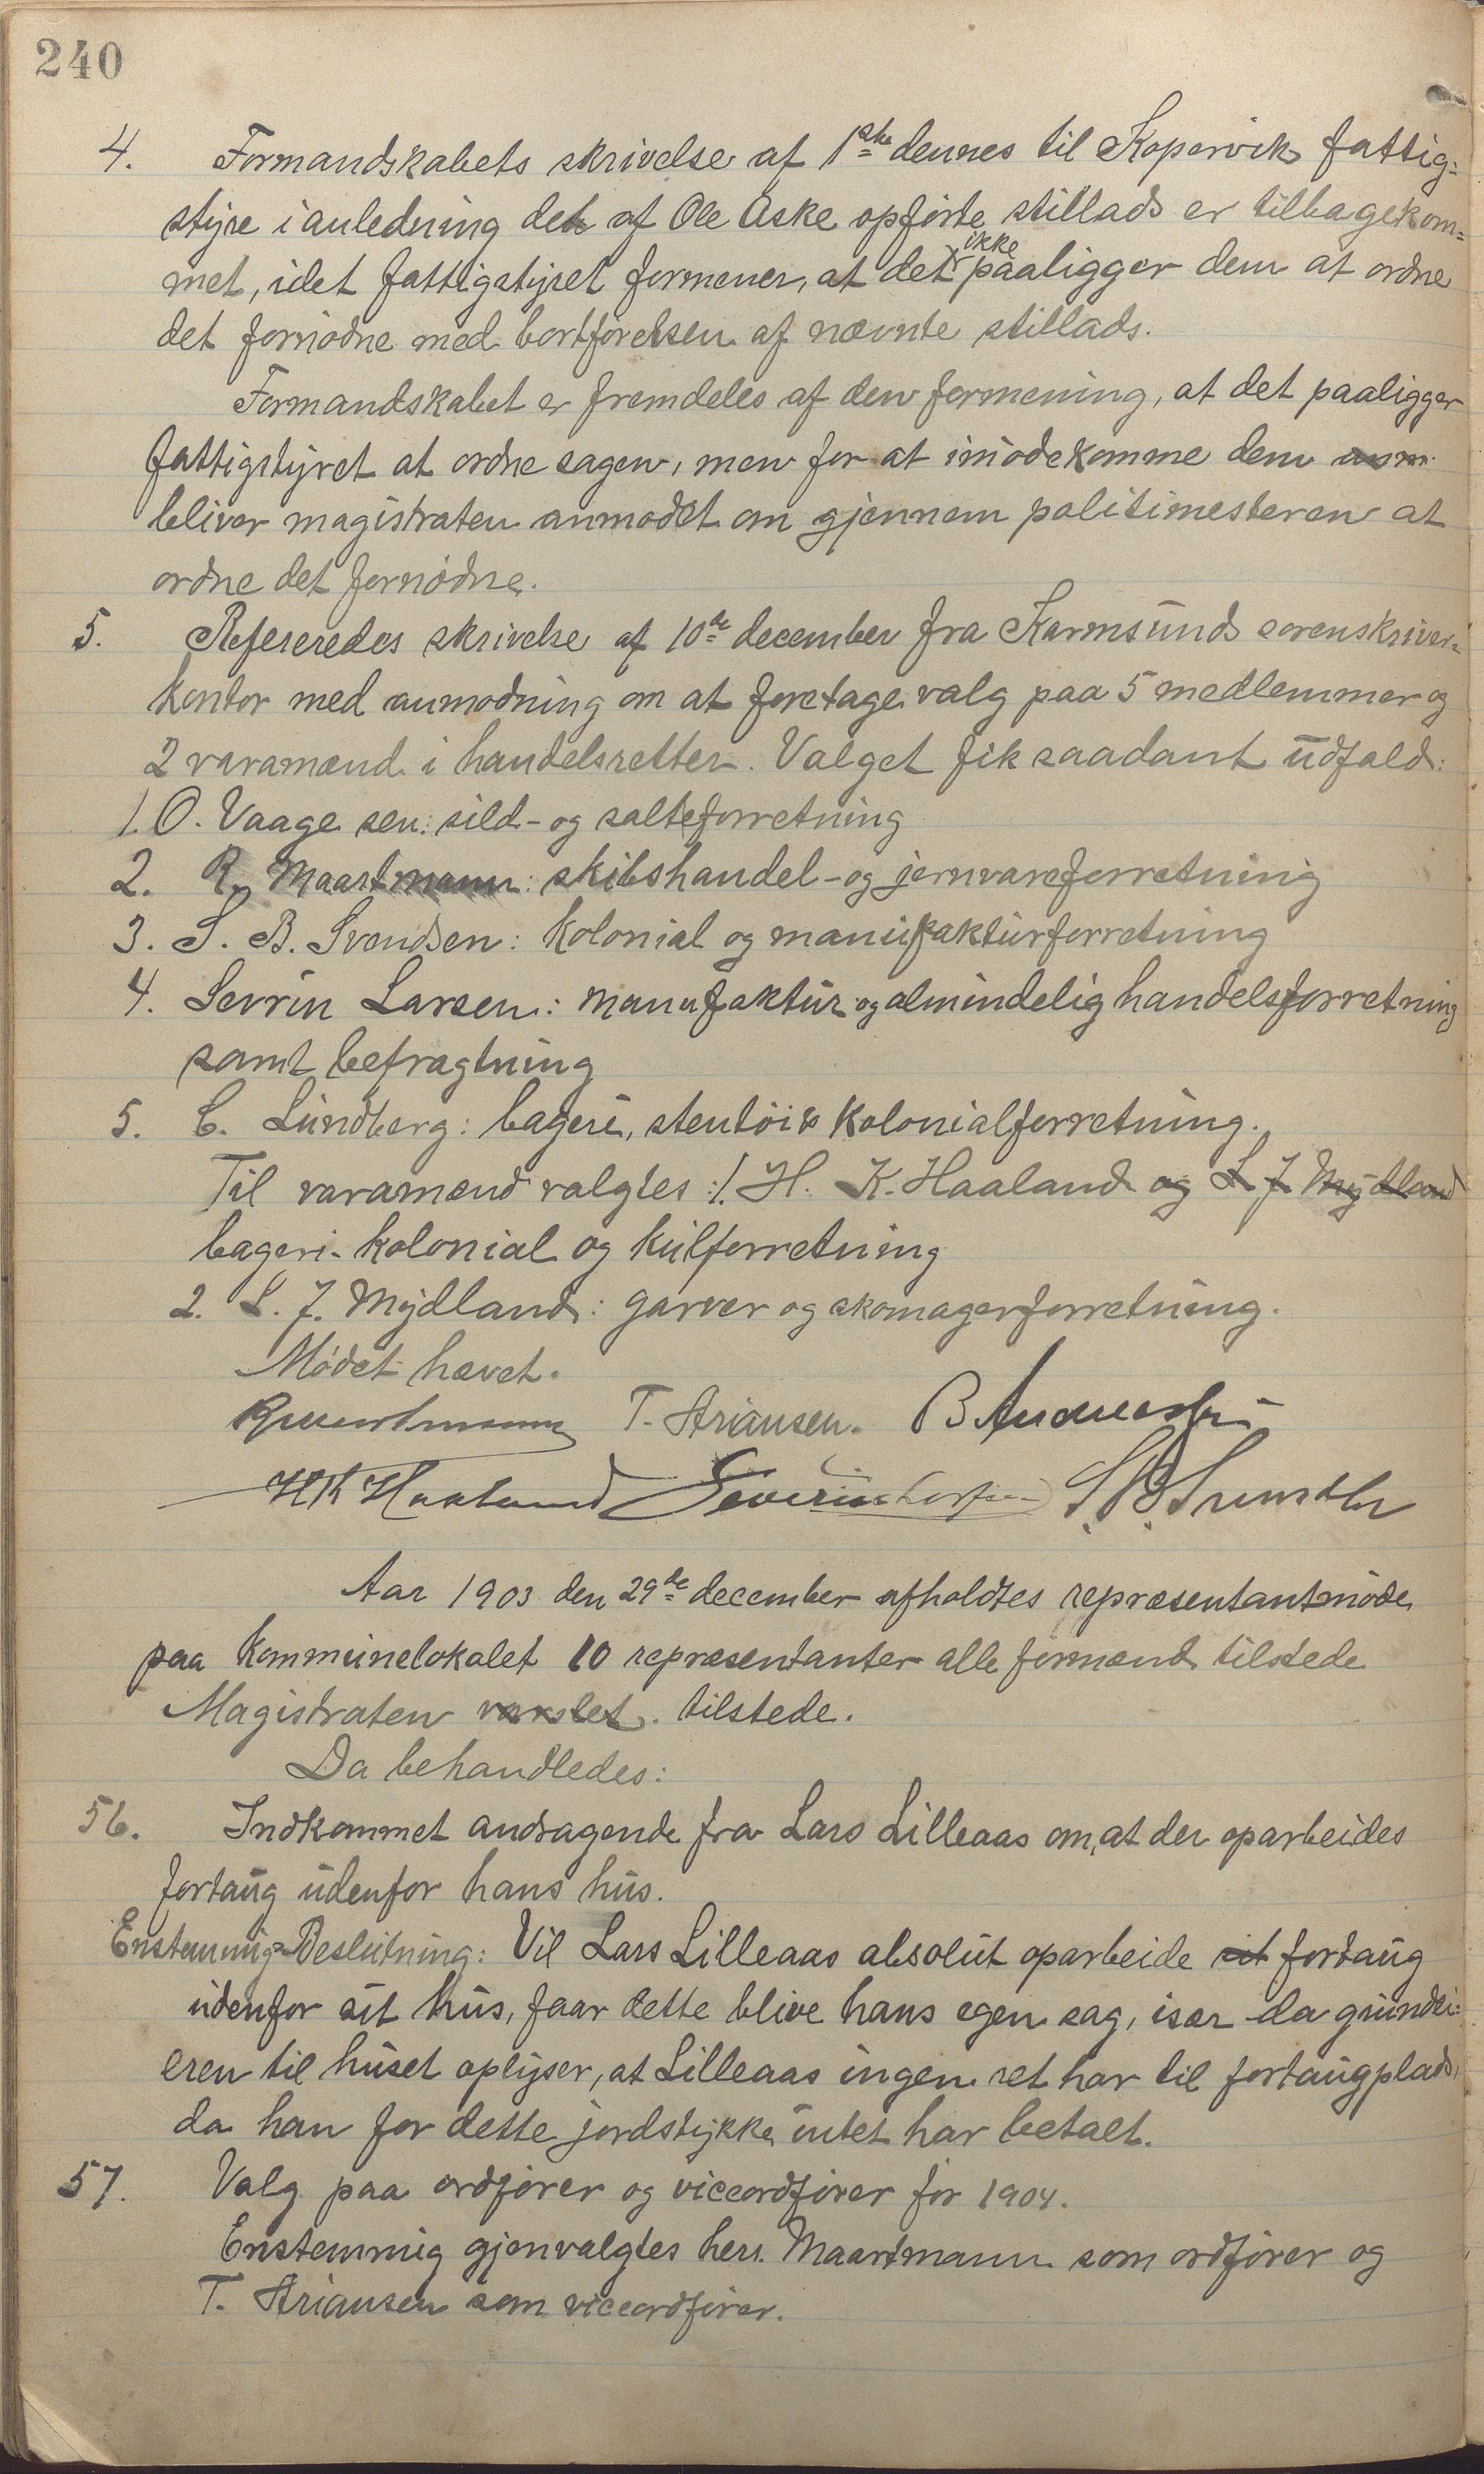 240
4. Formandskabets skrivelse af 1ste dennes til Kopervik fattig=
styre i anledning det af Ole Aske opførte stillads er tilbagekom=
met, idet fattigstyret formener, at det ikke paaligger dem at ordne
det fornødne med bortførelsen af nævnte stillads.
Formandskabet er fremdeles af den formening, at det paaligger
fattigstyret at ordne sagen, men for at imødekomme dem
bliver magistraten anmodet om gjennem politimesteren at
ordne det fornødne.
5. Refereredes skrivelse af 10de december fra Karmsund sorenskriver=
kontor med anmodning om at foretage valg paa 5 medlemmer og
2 varamænd i handelsretten. Valget fik saadant udfald:
1. O. Vaage sen: sild- og salteforretning
2. R. Maartmann: skibshandel- og jernvareforretning
3. S. B. Svendsen: kolonial og manufakturforretning
4. Sevrin Larsen: manufaktur og almindelig handelsforretning
samt befragtning
5. C. Lundberg: bageri, stentøi & kolonialforretning.
Til varamænd valgtes: 1. H. K. Haaland og L J Mydland
bageri- kolonial og kulforretning
2. L. J. Mydland: garver og skomagerforretning.
Mødet hævet.
R Maartmann T. Ariansen. B Andersen
HK Haaland Severin Larsen S. B. Svendsen
Aar 1903 den 29de december afholdtes repræsentantmøde
paa kommunelokalet 10 repræsentanter alle formænd tilstede
Magistraten varslet. tilstede.
Da behandledes:
56. Indkommet andragende fra Lars Lilleaas om, at der oparbeides
fortaug udenfor hans hus.
Enstemmig Beslutning: Vil Lars Lilleaas absolut oparbeide sit fortaug
udenfor sit hus, faar dette blive hans egen sag, især da grundei=
eren til huset oplyser, at Lilleaas ingen ret har til fortaugplads,
da han for dette jordstykke intet har betalt.
57. Valg paa ordfører og viceordfører for 1904.
Enstemmig gjenvalgtes herr. Maartmann som ordfører og
T. Ariansen som viceordfører.